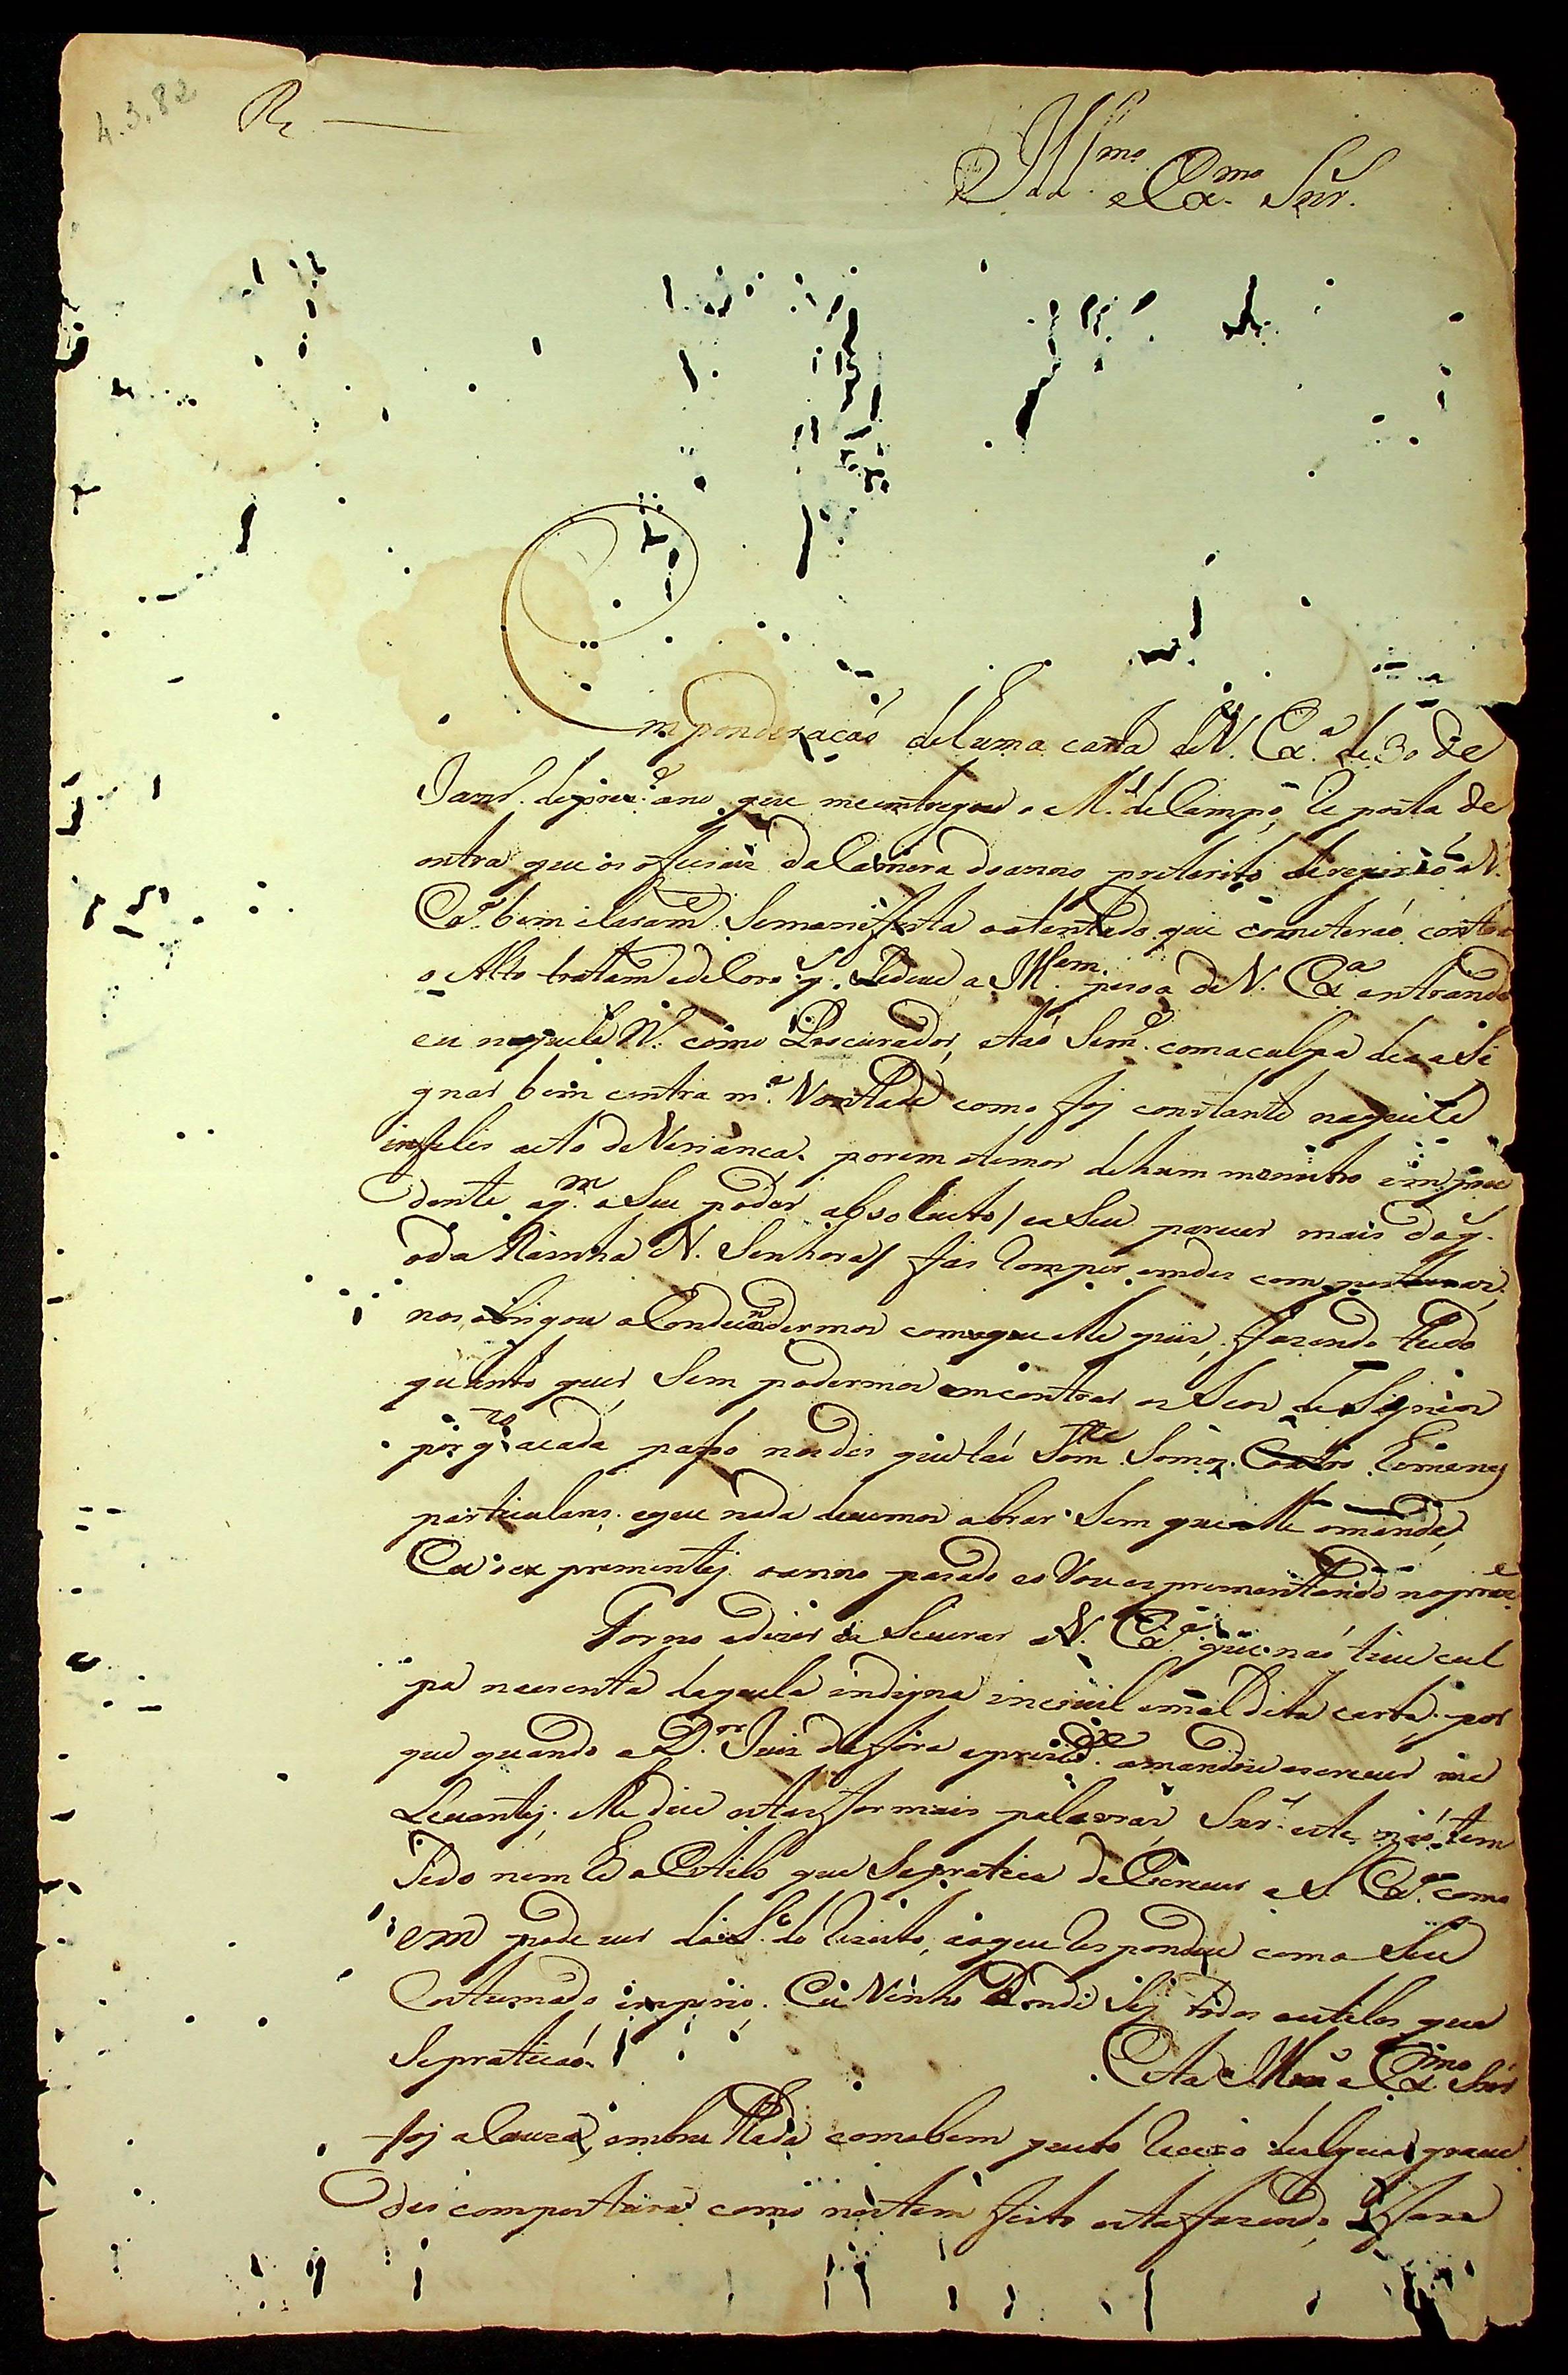 4.3.82
R.e
Ill.mo e Ex.mo Snr.
Em ponderacaó de huma carta de V. Ex.a de 30 de
Janr.o do prez.e ano que me entregou o M.e de Campo, e posta de
outra que os oficiais da Camera do anno preterito deregiraó a V.
Ex.a bem claram.e se manifesta o atentado que cometeraó contra
o Alto tratam.o e decoro q. se deve a Ill.em. pesoa de V. Ex.a entrando
eu naquele N.o como Procurador, e taó som.e com a culpa de a asi
gnar bem contra m.a Vontade como foj constante naquele
infelis acto de Veriança. porem o temor de hum menistro empru
dente a q.m o Seu poder absolucto / e a Seu parecer mais do q.
o da Rainha N. Senhora / fas Romper em
nos obrigou a Condecendermos com o que elle quis, fazendo tudo
quanto quer Sem podermos encontrar os Seos deSignios
por q. a cada paso nos dis que laí Som.te Somos
particulares, e que nada devemos obrar Sem que elle o mande,
Eu o exprementej o anno pasado e o Vou exprementando no prez.e
Torno a dizer e a Segurar a V. Ex.a que naó tive cul
pa na escrita daquela indigna incivil e mal dita carta. por
que quando o D.or Juiz de fora e prezid.e a mandou escrever me
Levantej, e lhe dice estas formais palavras, Snr. este naó tem
Sido nem he o Estilo que Se pratica de Escrever a S. Ex.a como
em pode ver do L.o do Rezisto, ao que respondeu com o Seu
Costumado imperio. Eu Venho donde Sej todos os estilos que
Se praticaó.
Esta Ill.mo e Ex.mo Snr
foj a Cauza, embrulhada com o bem justo Receio de algua grave
des compostura como nos tem feito esta fazendo, e fara